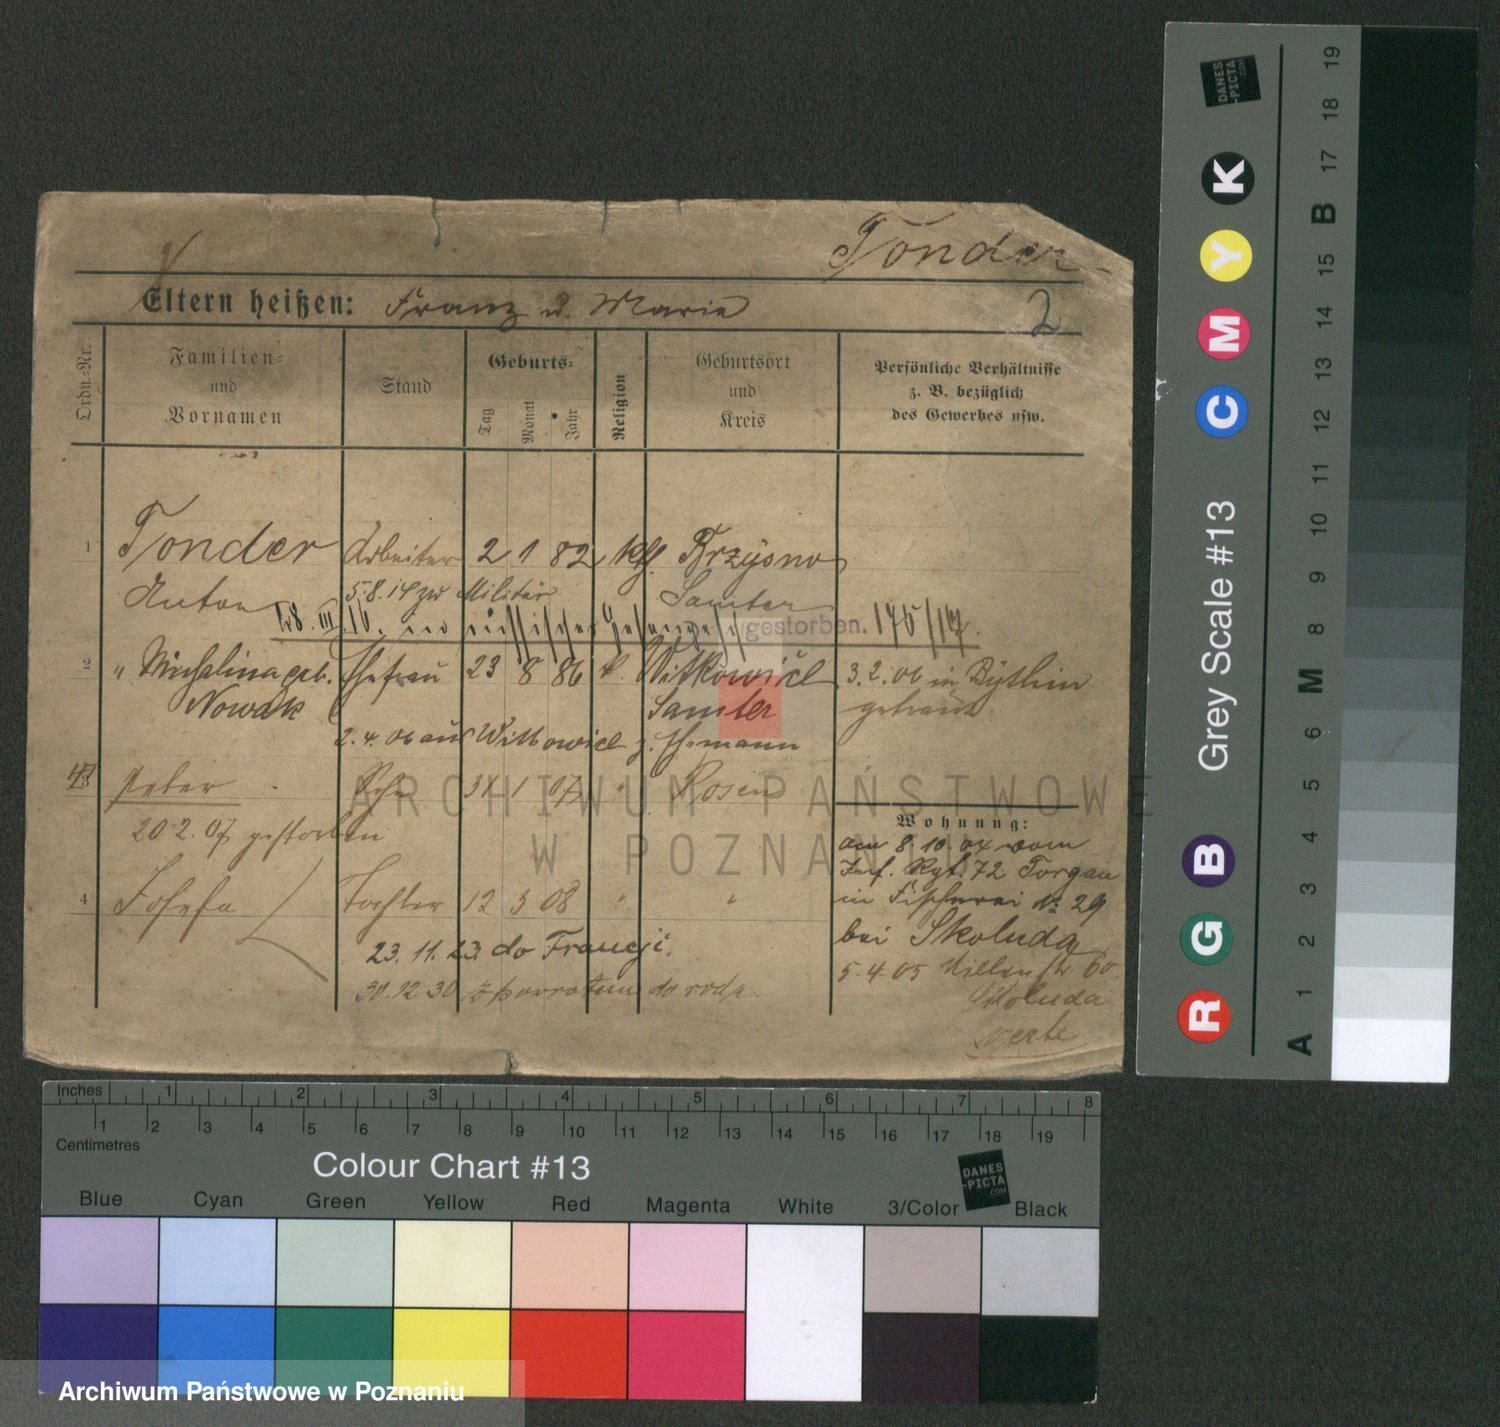 Tonder
Eltern heißen: Franz u. Marie
2
Ordn.-Nr.
Familien-
und
Vornamen
Stand
Geburts-
Tag
Monat
Jahr
Religion
Geburtsort
und
Kreis
Persönliche Verhältnisse
z. B. bezüglich
des Gewerbes usw.
1 Tonder Arbeiter 2 1 82 kth Brzysno
Anton 5.8.14 zu Militär Samter
28. III. 16. in russischer gestorben. 175/17.
2 " Michalina geb. Ehefrau 23 8 86 k. Witkowicl 3.2.06 in Bythin
Nowak Samter getraut
2.4.06 aus Wittowicl z. Ehemann
3 Peter Sohn 31 1 07 " Posen
20.2.07 gestorben
Wohnung:
am 8.10.04 vom
Inf. Rgt. 72 Torgau
in Fischerei № 29
bei Skoluda
5.4.05 60
Skoluda
verte
4 Josefa Tochter 12 3 08 " "
23.11.23. do Francji.
30.12.30 z powrotem do
ARCHIWUM PAŃSTWOWE
W POZNANIU
Inches 1 2 3 4 5 6 7 8
Centimetres 1 2 3 4 5 6 7 8 9 10 11 12 13 14 15 16 17 18 19
Colour Chart #13
DANES
-PICTA
.COM
Blue Cyan Green Yellow Red Magenta White 3/Color Black
Archiwum Państwowe w Poznaniu
Grey Scale #13
R G B C M Y K
DANES
-PICTA
.COM
A 1 2 3 4 5 6 M 8 9 10 11 12 13 14 15 B 17 18 19